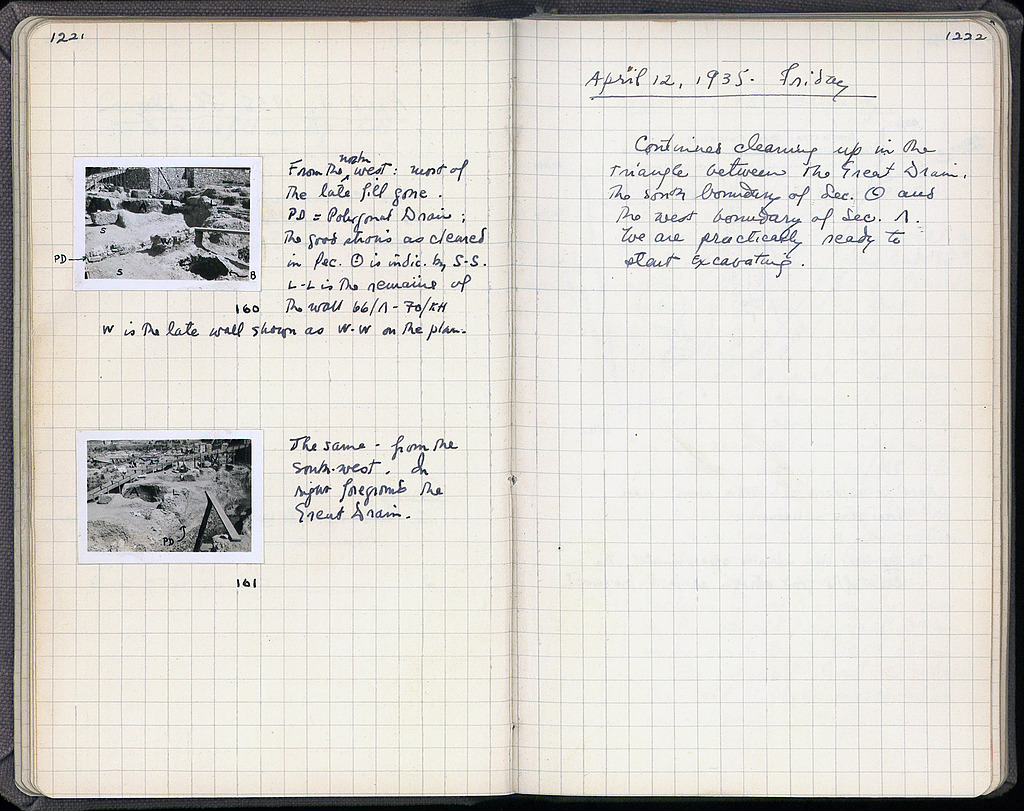 1221
From the north west: most of
the late fill gone.
PD = Polygonal Drain;
the good strosis as cleared
in Sec. Θ is indic. by S-S.
L-L is the remains of
the wall 66/Λ - 70/ΚΗ
W is the late wall shown as W-W on the plan.
PD
S
S
B
160
The same - from the
south-west. In
right foreground the
Great Drain.
PD
161
1222
April 12, 1935. Friday
Continued cleaning up in the
triangle between the Great Drain,
the south boundary of Sec. Θ and
the west boundary of Sec. Λ.
We are practically ready to
start excavating.